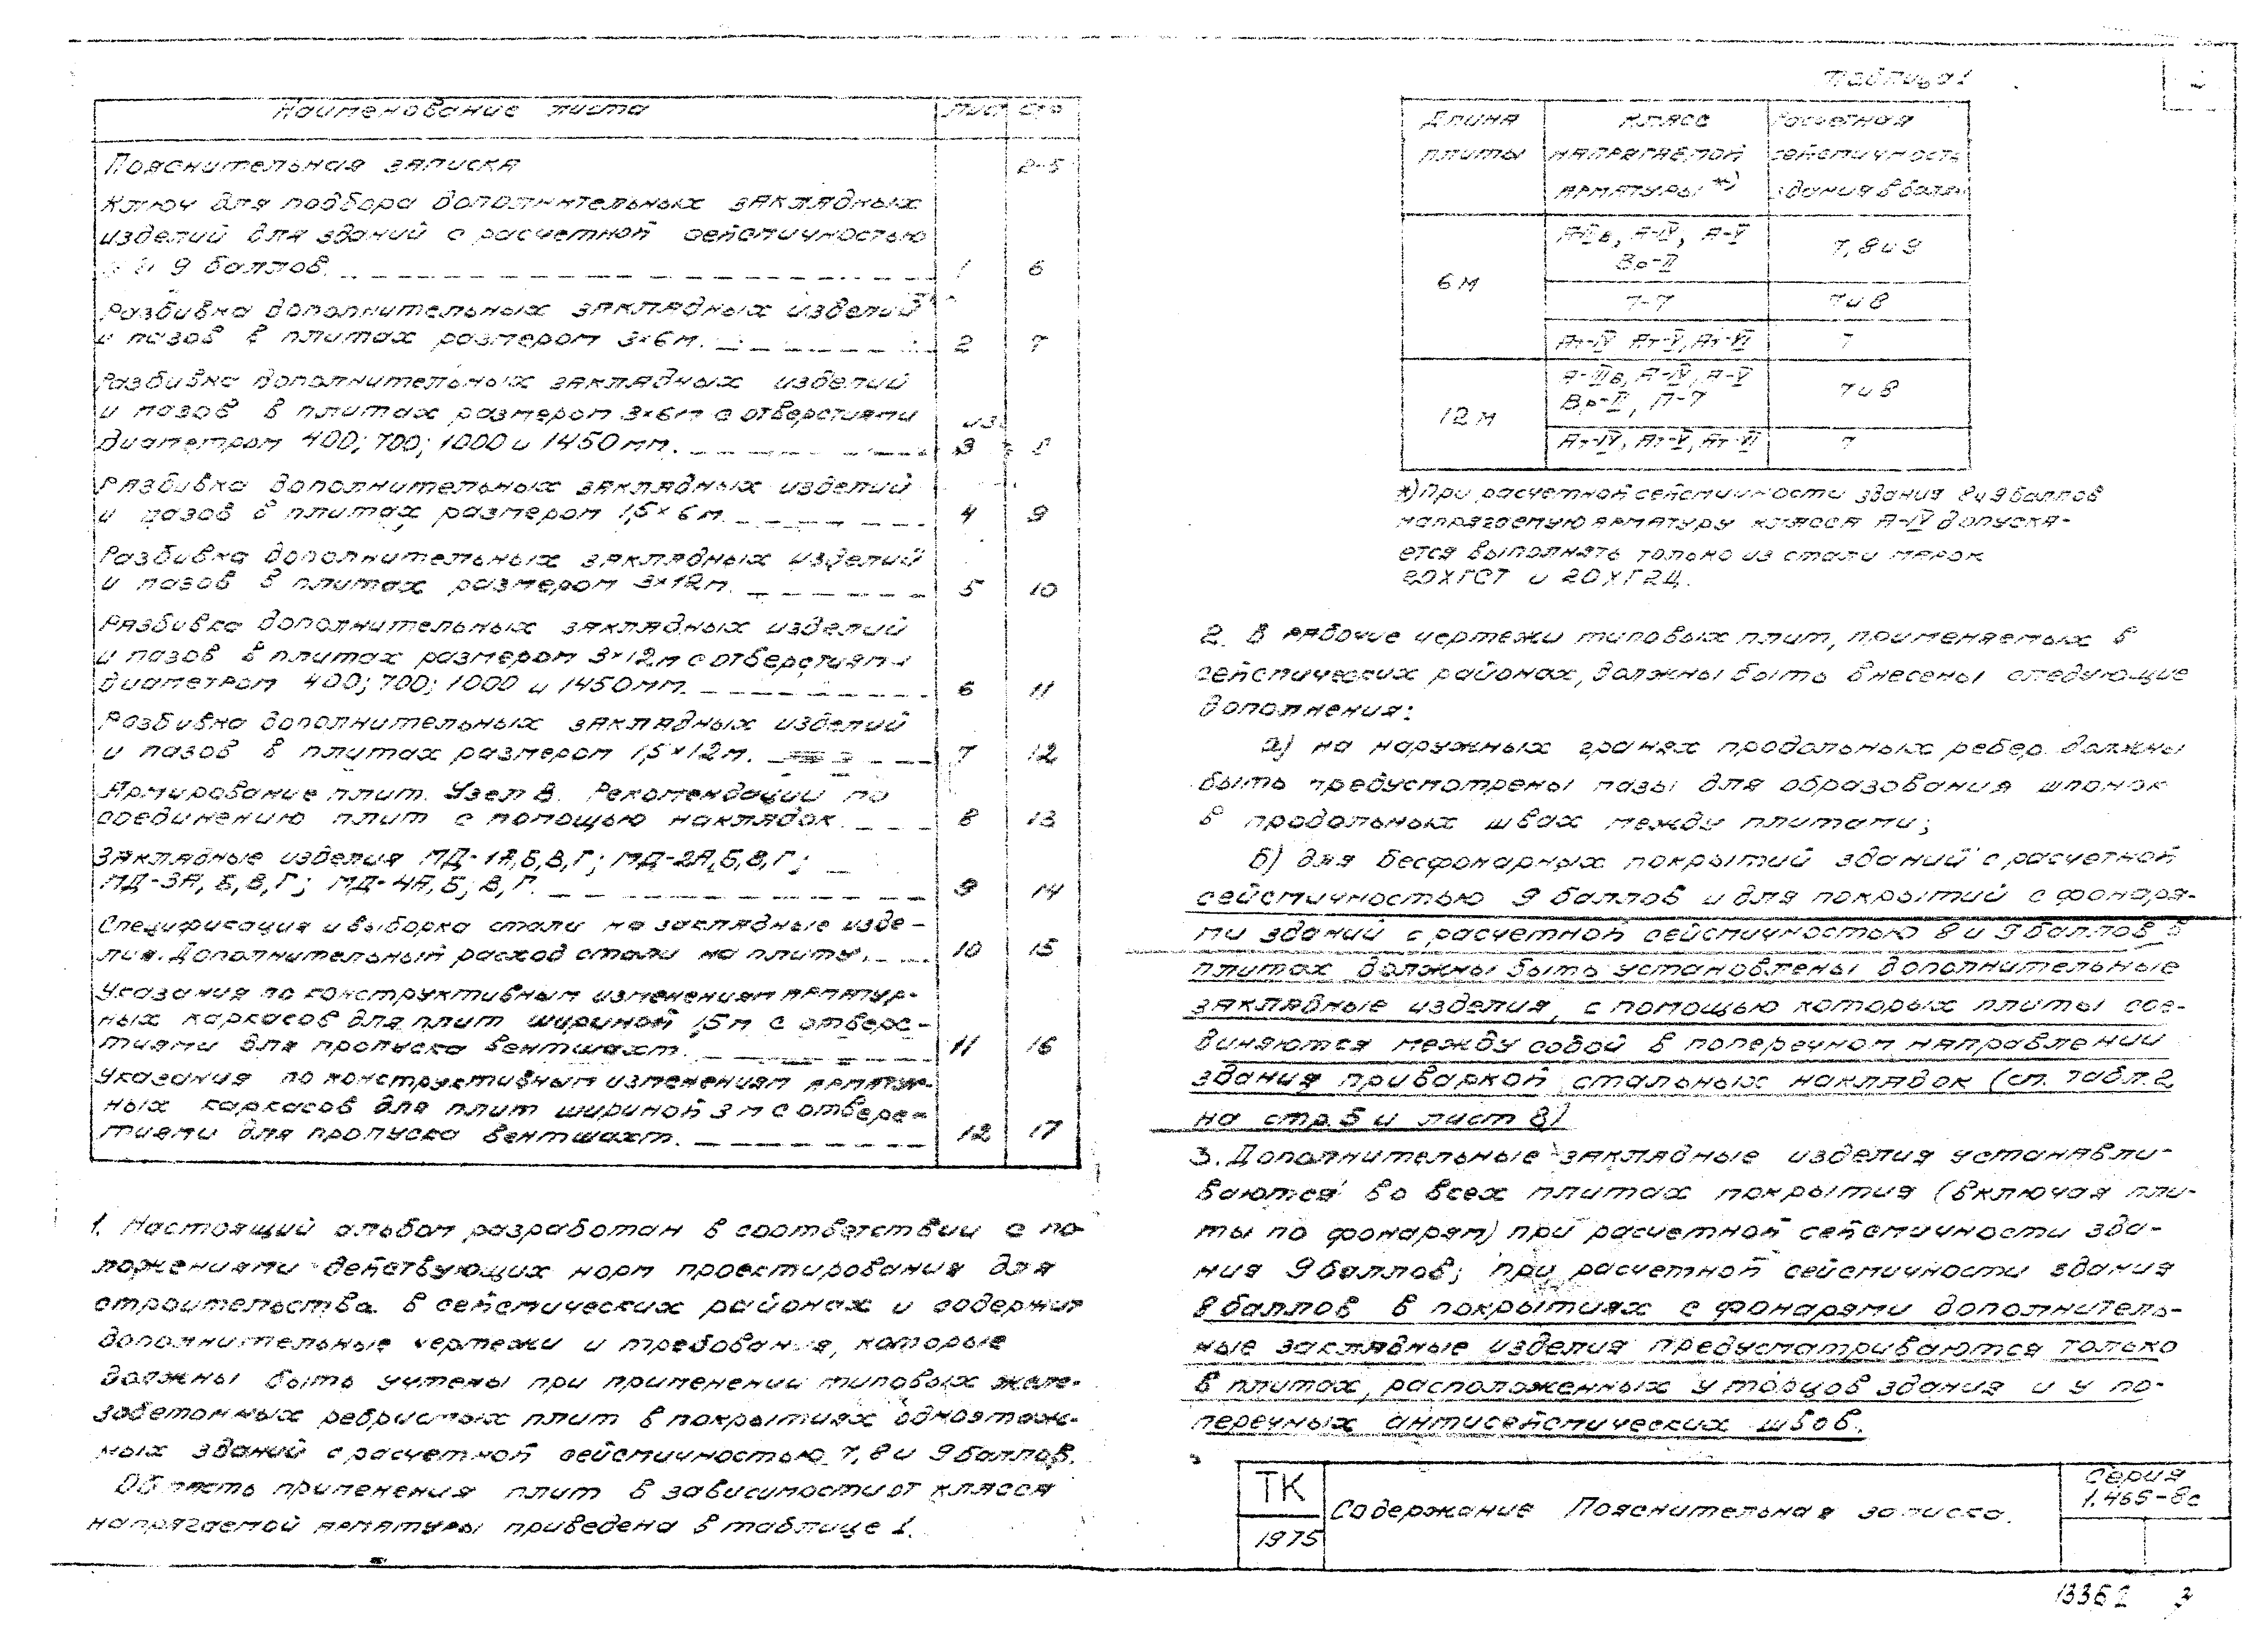 Наименование листа Лист Стр
Пояснительная записка 2-5
Ключ для подбора дополнительных закладных
изделий для зданий с расчетной сейсмичностью
и 9 баллов. 1 6
Разбивка дополнительных закладных изделий
и пазов в плитах размером 3×6м. 2 7
Разбивка дополнительных закладных изделий
и пазов в плитах размером 3×6м с отверстиями
диаметром 400; 700; 1000 и 1450мм. 3 8
Разбивка дополнительных закладных изделий
и пазов в плитах размером 1,5×6м. 4 9
Разбивка дополнительных закладных изделий
и пазов в плитах размером 3×12м. 5 10
Разбивка дополнительных закладных изделий
и пазов в плитах размером 3×12м с отверстиями
диаметром 400; 700; 1000 и 1450мм. 6 11
Разбивка дополнительных закладных изделий
и пазов в плитах размером 1,5×12м. 7 12
Армирование плит. Узел В. Рекомендации по
соединению плит с помощью накладок. 8 13
Закладные изделия МД-1А,Б,В,Г; МД-2А,Б,В,Г;
МД-3А,Б,В,Г; МД-4А,Б,В,Г. 9 14
Спецификация и выборка стали на закладные изде-
лия. Дополнительный расход стали на плиту. 10 15
Указания по конструктивным изменениям арматур-
ных каркасов для плит шириной 1,5м с отверс-
тиями для пропуска вентшахт. 11 16
Указания по конструктивным изменениям арматур-
ных каркасов для плит шириной 3м с отверс-
тиями для пропуска вентшахт. 12 17
1. Настоящий альбом разработан в соответствии с по-
ложениями действующих норм проектирования для
строительства в сейсмических районах и содержит
дополнительные чертежи и требования, которые
должны быть учтены при применении типовых желе-
зобетонных ребристых плит в покрытиях одноэтаж-
ных зданий с расчетной сейсмичностью 7, 8 и 9 баллов.
Область применения плит в зависимости от класса
напрягаемой арматуры приведена в таблице 1.
Таблица 1
Длина Класс Расчетная
плиты напрягаемой сейсмичность
арматуры *) здания в балл
А-IIIв, А-IV, А-V
Вр-II 7, 8 и 9
6м
П-7 7 и 8
Ат-IV, Ат-V, Ат-VI 7
А-IIIв, А-IV, А-V
Вр-II, П-7 7 и 8
12м
Ат-IV, Ат-V, Ат-VI 7
*) При расчетной сейсмичности здания 8 и 9 баллов
напрягаемую арматуру класса А-IV допуска-
ется выполнять только из стали марок
20ХГСТ и 20ХГ2Ц.
2. В рабочие чертежи типовых плит, применяемых в
сейсмических районах, должны быть внесены следующие
дополнения:
а) на наружных гранях продольных ребер должны
быть предусмотрены пазы для образования шпонок
в продольных швах между плитами;
б) для бесфонарных покрытий зданий с расчетной
сейсмичностью 9 баллов и для покрытий с фонаря-
ми зданий с расчетной сейсмичностью 8 и 9 баллов в
плитах должны быть установлены дополнительные
закладные изделия, с помощью которых плиты сое-
диняются между собой в поперечном направлении
здания приваркой стальных накладок (см. табл. 2
на стр. 5 и лист 8)
3. Дополнительные закладные изделия устанавли-
ваются во всех плитах покрытия (включая пли-
ты по фонарям) при расчетной сейсмичности зда-
ния 9 баллов; при расчетной сейсмичности здания
8 баллов в покрытиях с фонарями дополнитель-
ные закладные изделия предусматриваются только
в плитах, расположенных у торцов здания и у по-
перечных антисейсмических швов.
ТК
1975
Содержание Пояснительная записка.
Серия
1.465-8с
13362 3